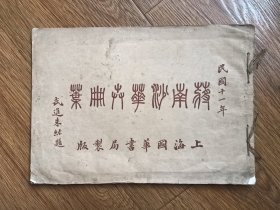 民國十一年
蔣南沙華卉冊葉
武進秦絅題
上海國華書局製版